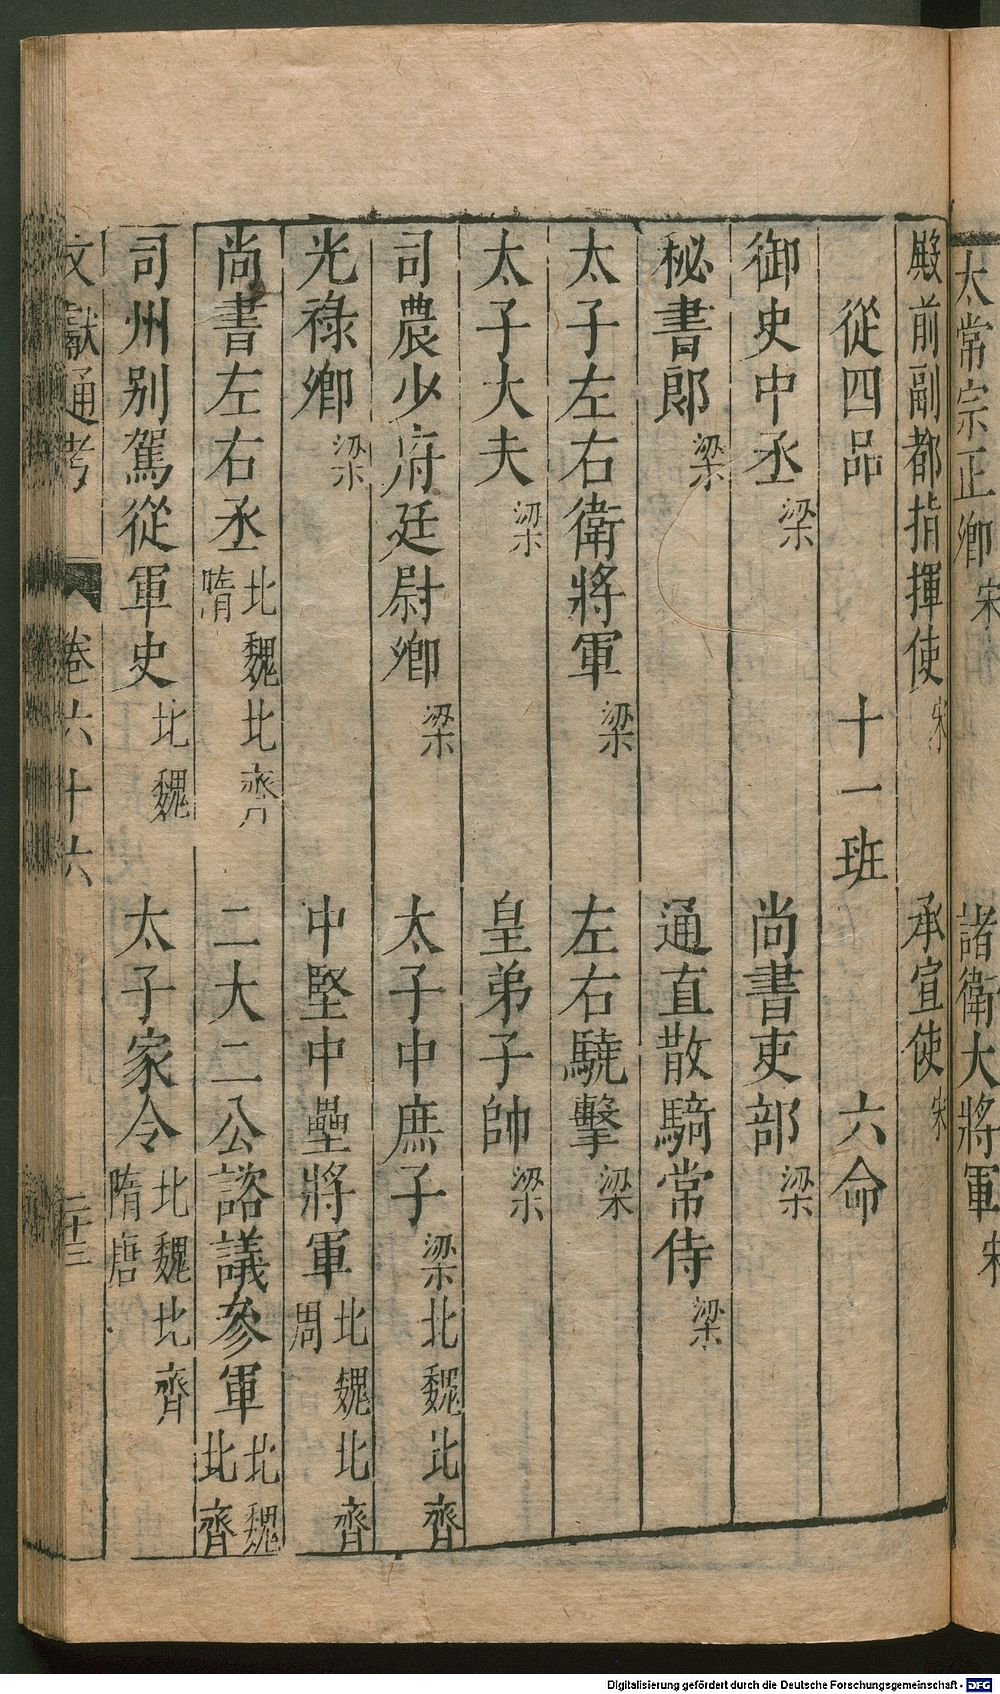 太常宗正卿宋 諸衛大將軍宋
殿前副都指揮使宋 承宣使宋
從四品 十一班 六命
御史中丞梁 尚書吏部梁
秘書郎梁 通直散騎常侍梁
太子左右衛將軍梁 左右驍擊梁
太子大夫梁 皇弟子帥梁
司農少府廷尉卿梁 太子中庶子梁北魏北齊
光祿卿梁 中堅中壘將軍北魏北齊周
尚書左右丞北魏北齊隋 二大二公諮議參軍北魏北齊
司州別駕從軍史北魏 太子家令北魏北齊隋唐
文獻通考 卷六十六 二十三
Digitalisierung gefördert durch die Deutsche Forschungsgemeinschaft - DFG